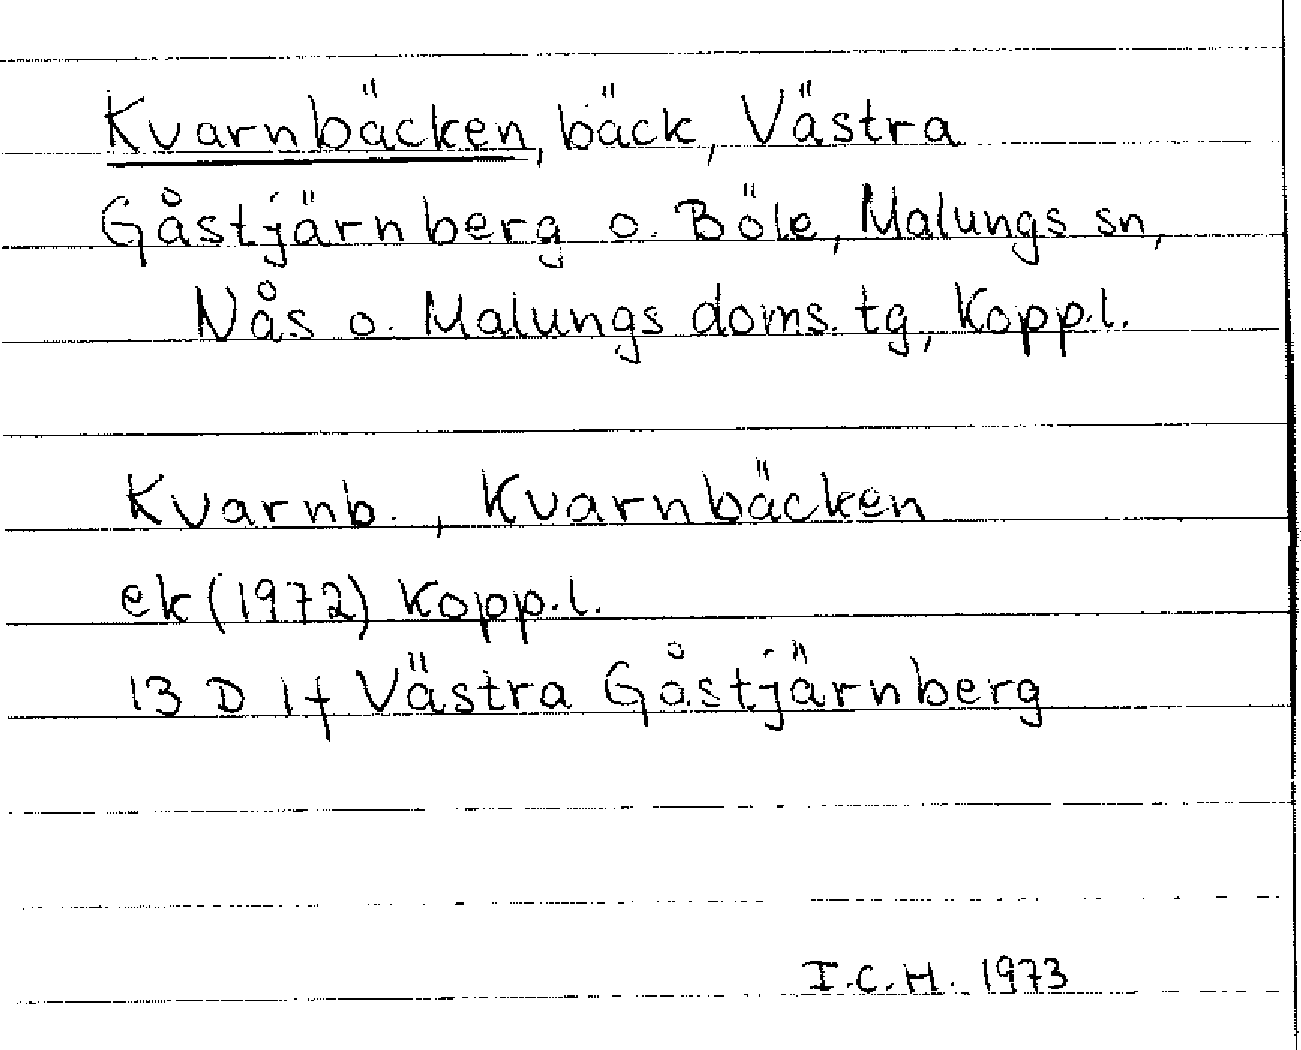 Kvarnbäcken, bäck, Västra
Gåstjärnberg o. Böle, Malungs sn,
Nås o. Malungs doms. tg, Kopp.l.
Kvarnb., Kvarnbäcken
ek (1972) Kopp.l.
13 D 1f Västra Gåstjärnberg
I.C.H. 1973